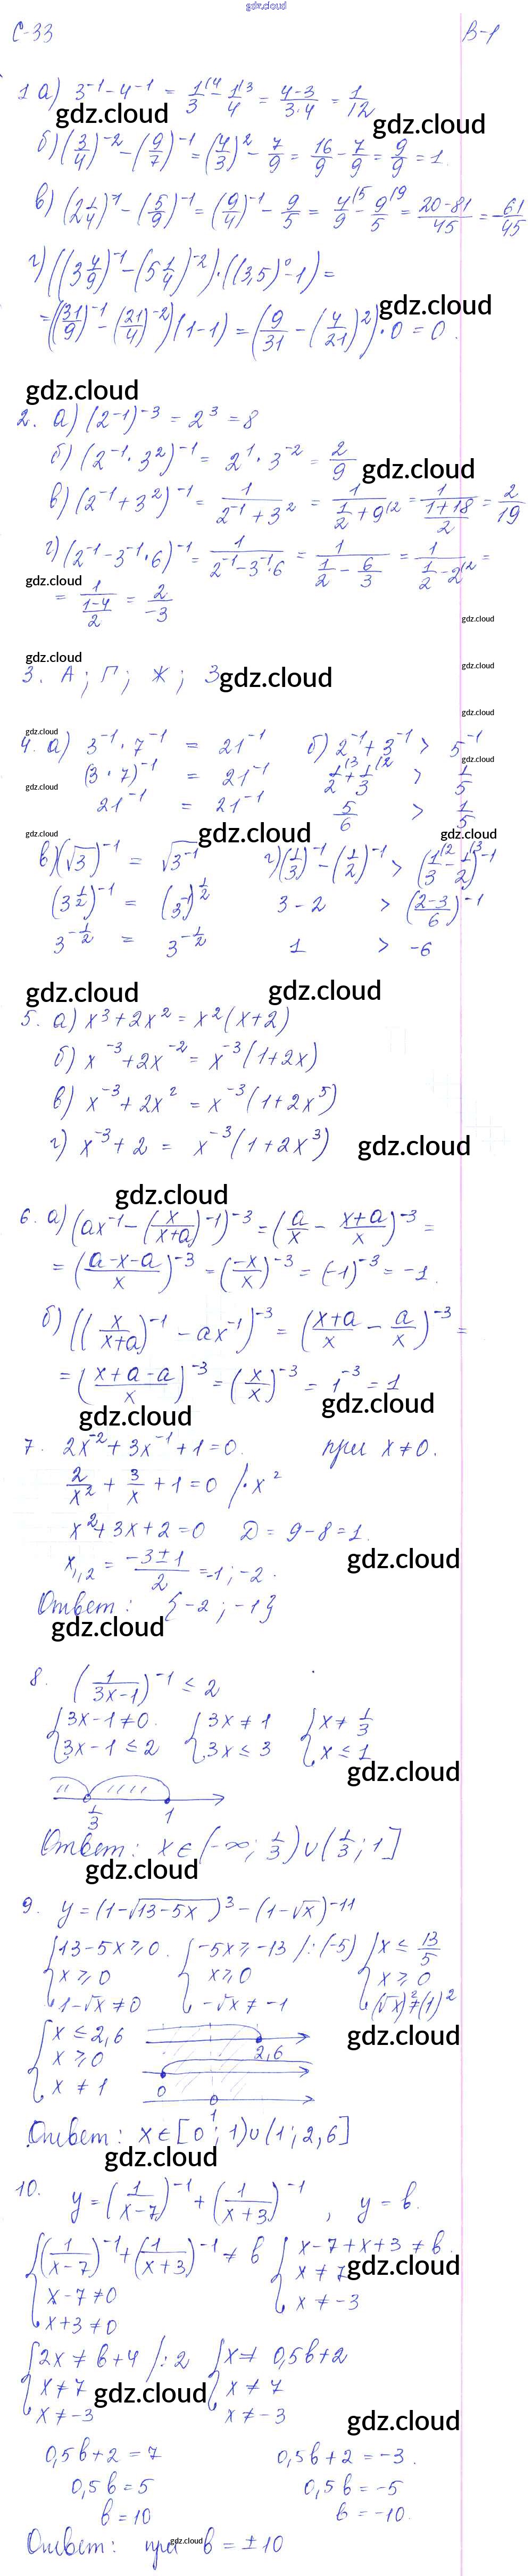 gdz.cloud
С-33 В-1
1 а) 3⁻¹ - 4⁻¹ = 1/3 |4 - 1/4 |3 = (4-3)/(3·4) = 1/12
gdz.cloud gdz.cloud
б) (3/4)⁻² - (9/7)⁻¹ = (4/3)² - 7/9 = 16/9 - 7/9 = 9/9 = 1.
в) (2 1/4)⁻¹ - (5/9)⁻¹ = (9/4)⁻¹ - 9/5 = 4/9 |5 - 9/5 |9 = (20-81)/45 = -61/45
г) ((3 4/9)⁻¹ - (5 1/4)⁻²)·((3,5)⁰ - 1) =
gdz.cloud
= ((31/9)⁻¹ - (21/4)⁻²)(1-1) = (9/31 - (4/21)²)·0 = 0.
gdz.cloud
2. а) (2⁻¹)⁻³ = 2³ = 8
б) (2⁻¹·3²)⁻¹ = 2¹·3⁻² = 2/9
gdz.cloud
в) (2⁻¹+3²)⁻¹ = 1/(2⁻¹+3²) = 1/(1/2+9|2) = 1/((1+18)/2) = 2/19
г) (2⁻¹-3⁻¹·6)⁻¹ = 1/(2⁻¹-3⁻¹·6) = 1/(1/2 - 6/3) = 1/(1/2-2|2) =
gdz.cloud
= 1/((1-4)/2) = 2/-3
gdz.cloud
gdz.cloud gdz.cloud
3. А; Г; Ж; З
gdz.cloud
gdz.cloud
gdz.cloud gdz.cloud
4. а) 3⁻¹·7⁻¹ = 21⁻¹ б) 2⁻¹+3⁻¹ > 5⁻¹
(3·7)⁻¹ = 21⁻¹ 1/2 |3 + 1/3 |2 > 1/5
gdz.cloud
21⁻¹ = 21⁻¹ 5/6 > 1/5
gdz.cloud gdz.cloud gdz.cloud
в) (√3)⁻¹ = √3⁻¹ г) (1/3)⁻¹ - (1/2)⁻¹ > (1/3 |2 - 1/2 |3)⁻¹
(3^(1/2))⁻¹ = (3⁻¹)^(1/2) 3-2 > ((2-3)/6)⁻¹
3^(-1/2) = 3^(-1/2) 1 > -6
gdz.cloud gdz.cloud
5. а) x³+2x² = x²(x+2)
б) x⁻³+2x⁻² = x⁻³(1+2x)
в) x⁻³+2x² = x⁻³(1+2x⁵)
г) x⁻³+2 = x⁻³(1+2x³)
gdz.cloud
gdz.cloud
6. а) (ax⁻¹ - (x/(x+a))⁻¹)⁻³ = (a/x - (x+a)/x)⁻³ =
= ((a-x-a)/x)⁻³ = (-x/x)⁻³ = (-1)⁻³ = -1.
б) ((x/(x+a))⁻¹ - ax⁻¹)⁻³ = ((x+a)/x - a/x)⁻³ =
= ((x+a-a)/x)⁻³ = (x/x)⁻³ = 1⁻³ = 1
gdz.cloud gdz.cloud
7. 2x⁻²+3x⁻¹+1=0. при x≠0.
2/x² + 3/x + 1 = 0 /·x²
x²+3x+2=0 D = 9-8=1.
x₁,₂ = (-3±1)/2 = -1; -2.
gdz.cloud
Ответ: {-2; -1}
gdz.cloud
8. (1/(3x-1))⁻¹ ≤ 2
{3x-1≠0. {3x≠1 {x≠1/3
{3x-1≤2 {3x≤3 {x≤1
gdz.cloud
1/3 1
Ответ: x∈(-∞; 1/3)∪(1/3; 1]
gdz.cloud
9. y=(1-√(13-5x))³-(1-√x)⁻¹¹
{13-5x≥0. {-5x≥-13 /:(-5) {x≤13/5
x≥0 x≥0 x≥0
1-√x≠0 -√x≠-1 (√x)²≠(1)²
{x≤2,6
gdz.cloud
x≥0 2,6
x≠1 0
1
Ответ: x∈[0;1)∪(1;2,6]
gdz.cloud
10. y=(1/(x-7))⁻¹+(1/(x+3))⁻¹, y=b.
{(1/(x-7))⁻¹+(1/(x+3))⁻¹≠b {x-7+x+3≠b.
gdz.cloud
x-7≠0 x≠7
x+3≠0 x≠-3
{2x≠b+4 /:2 {x≠0,5b+2
x≠7 x≠7
gdz.cloud
x≠-3 x≠-3
gdz.cloud
0,5b+2=7 0,5b+2=-3.
0,5b=5 0,5b=-5
b=10 b=-10.
Ответ: при b=±10
gdz.cloud